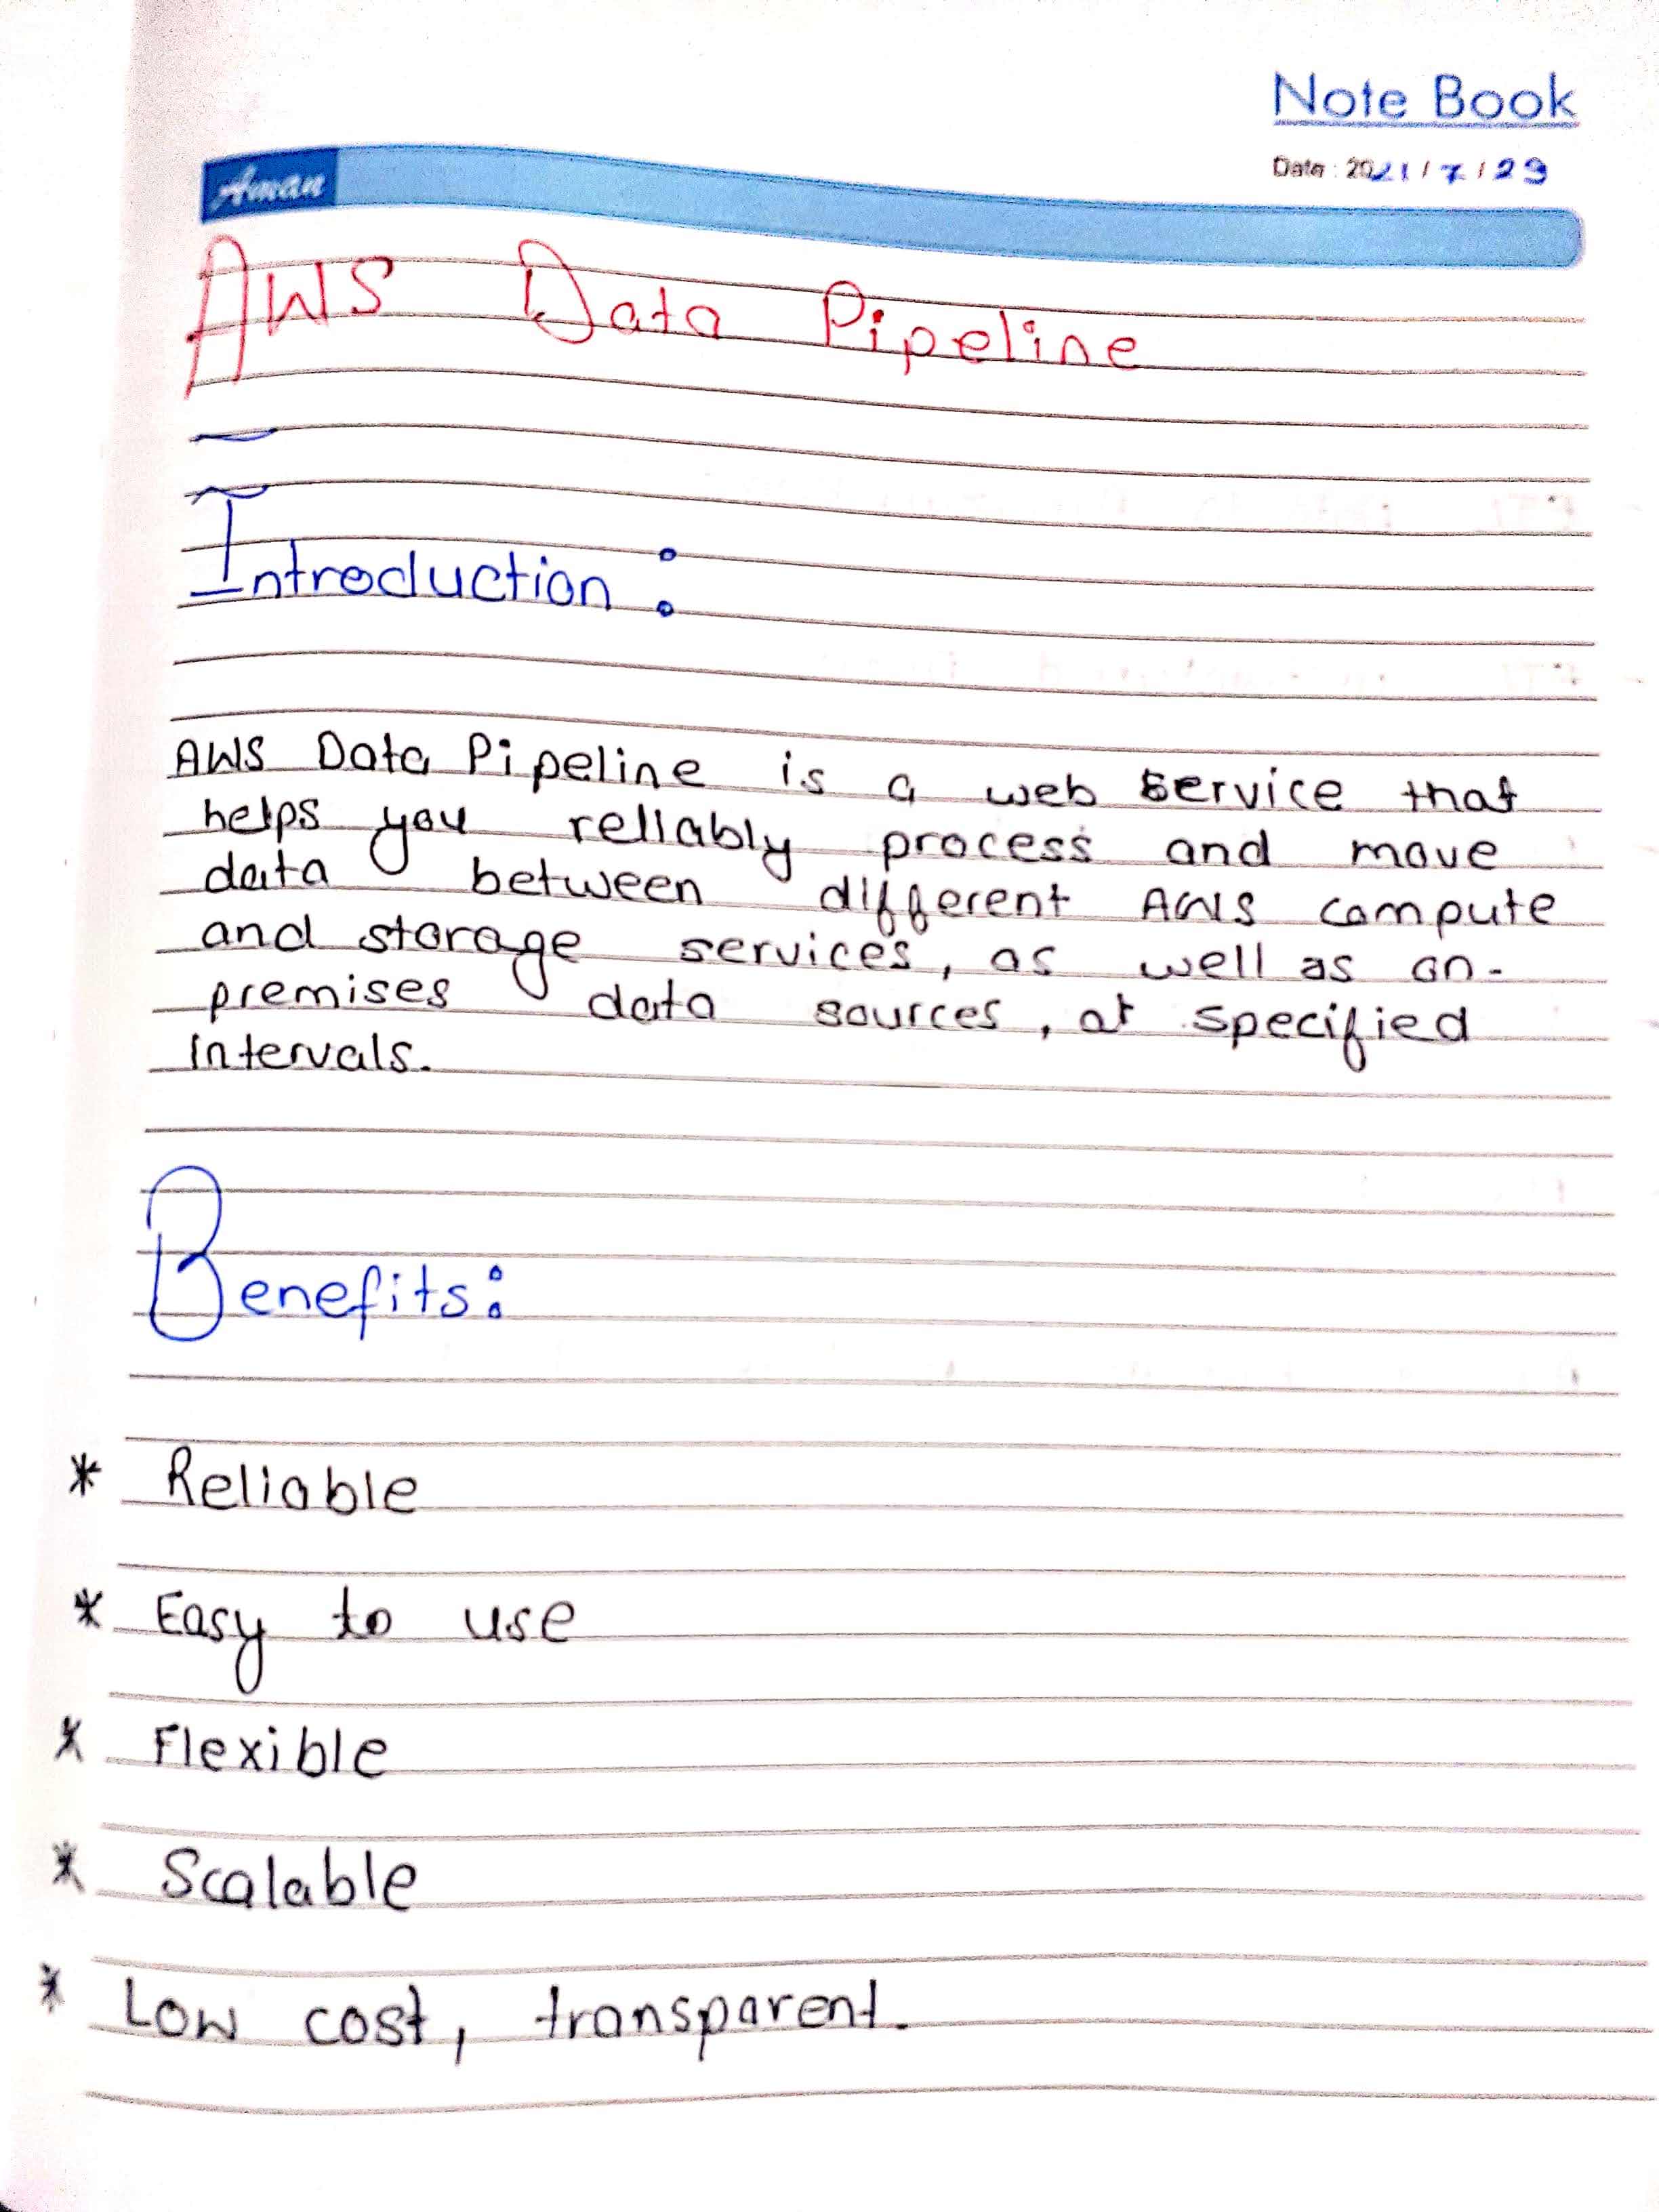 Note Book
Date : 2021 / 7 / 29
Aman
AWS Data Pipeline
Introduction :
AWS Data Pipeline is a web service that
helps you reliably process and move
data between different AWS compute
and storage services, as well as on-
premises data sources, at specified
intervals.
Benefits:
* Reliable
* Easy to use
* Flexible
* Scalable
* Low cost, transparent.